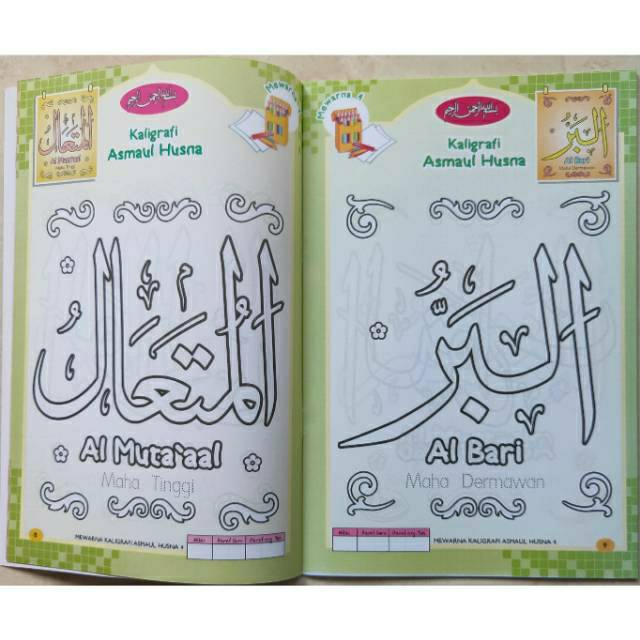 بسم الله الرحمن الرحيم
Mewarna
Kaligrafi
Asmaul Husna
المتعال
Al Muta'aal
Maha Tinggi
المُتَعَالُ
Al Muta`aal
Maha Tinggi
Nilai Paraf Guru Paraf org. Tua
8
MEWARNA KALIGRAFI ASMAUL HUSNA 4
Mewarna
بسم الله الرحمن الرحيم
Kaligrafi
Asmaul Husna
البر
Al Bari
Maha Dermawan
البَرُّ
Al Bari
Maha Dermawan
Nilai Paraf Guru Paraf org. Tua
MEWARNA KALIGRAFI ASMAUL HUSNA 4
9